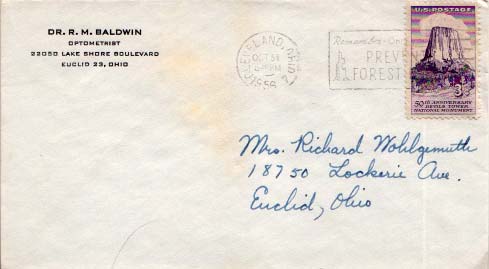 DR. R. M. BALDWIN
OPTOMETRIST
22050 LAKE SHORE BOULEVARD
EUCLID 23, OHIO
CLEVELAND, OHIO
OCT 31
1956
Remember-Only
PREVENT
FOREST
U.S. POSTAGE
3¢
50TH ANNIVERSARY
DEVILS TOWER
NATIONAL MONUMENT
Mrs. Richard Wohlgemuth
18750 Lockerie Ave.
Euclid, Ohio